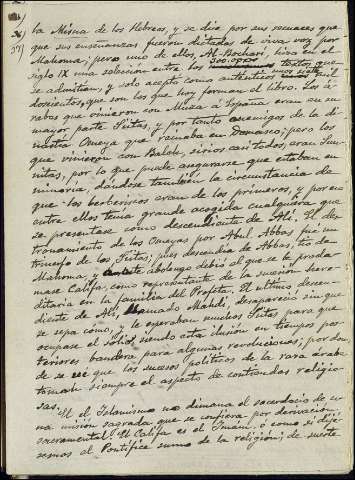 la Misna de los Hebreos, y se dice por sus secuaces que
que sus enseñanzas fueron dictadas de viva voz por
Mahoma; pero uno de ellos, Al-Bochari, hizo en el
300.000
siglo IX una selección entre los textos que
se admitian, y solo aceptó como auténticos unos siete mil
doscientos, que son los que hoy forman el libro. Los á-
rabes que vinieron con Muza á España eran en su
mayor parte Siitas, y por tanto enemigos de la di-
nastia Omeya que reinaba en Damasco; pero los
que vinieron con Baleh, sirios casi todos, eran Sun-
nitas, por lo que puede asegurarse que estaban en
minoría, dándose tambien la circunstancia de
que los berberiscos eran de los primeros, y por eso
entre ellos tenia grande acogida cualquiera que
se presentase como descendiente de Ali. El des-
tronamiento de los Omeyas por Abul Abbas fué un
triunfo de los Siitas; pues descendia de Abbas, tio de
Mahoma, y á este abolengo debió el que se le procla-
mase Califa, como representante de la sucesión here-
ditaria en la familia del Profeta. El ultimo descen-
diente de Ali, llamado Mahdi, desapareció sin que
se sepa cómo, y le esperaban muchos Siitas para que
ocupase el solio, siendo esta ilusión en tiempos pos-
teriores bandera para algunas revoluciones; por don-
de se ve que los sucesos políticos de la raza árabe
toman siempre el aspecto de contiendas religio-
sas.
En el Islamismo no dimana el sacerdocio de u-
na misión sagrada que se confiera por derivación
sacramental. El Califa es el Iman, ó como si dijé-
semos el Pontífice sumo de la religión; de suerte